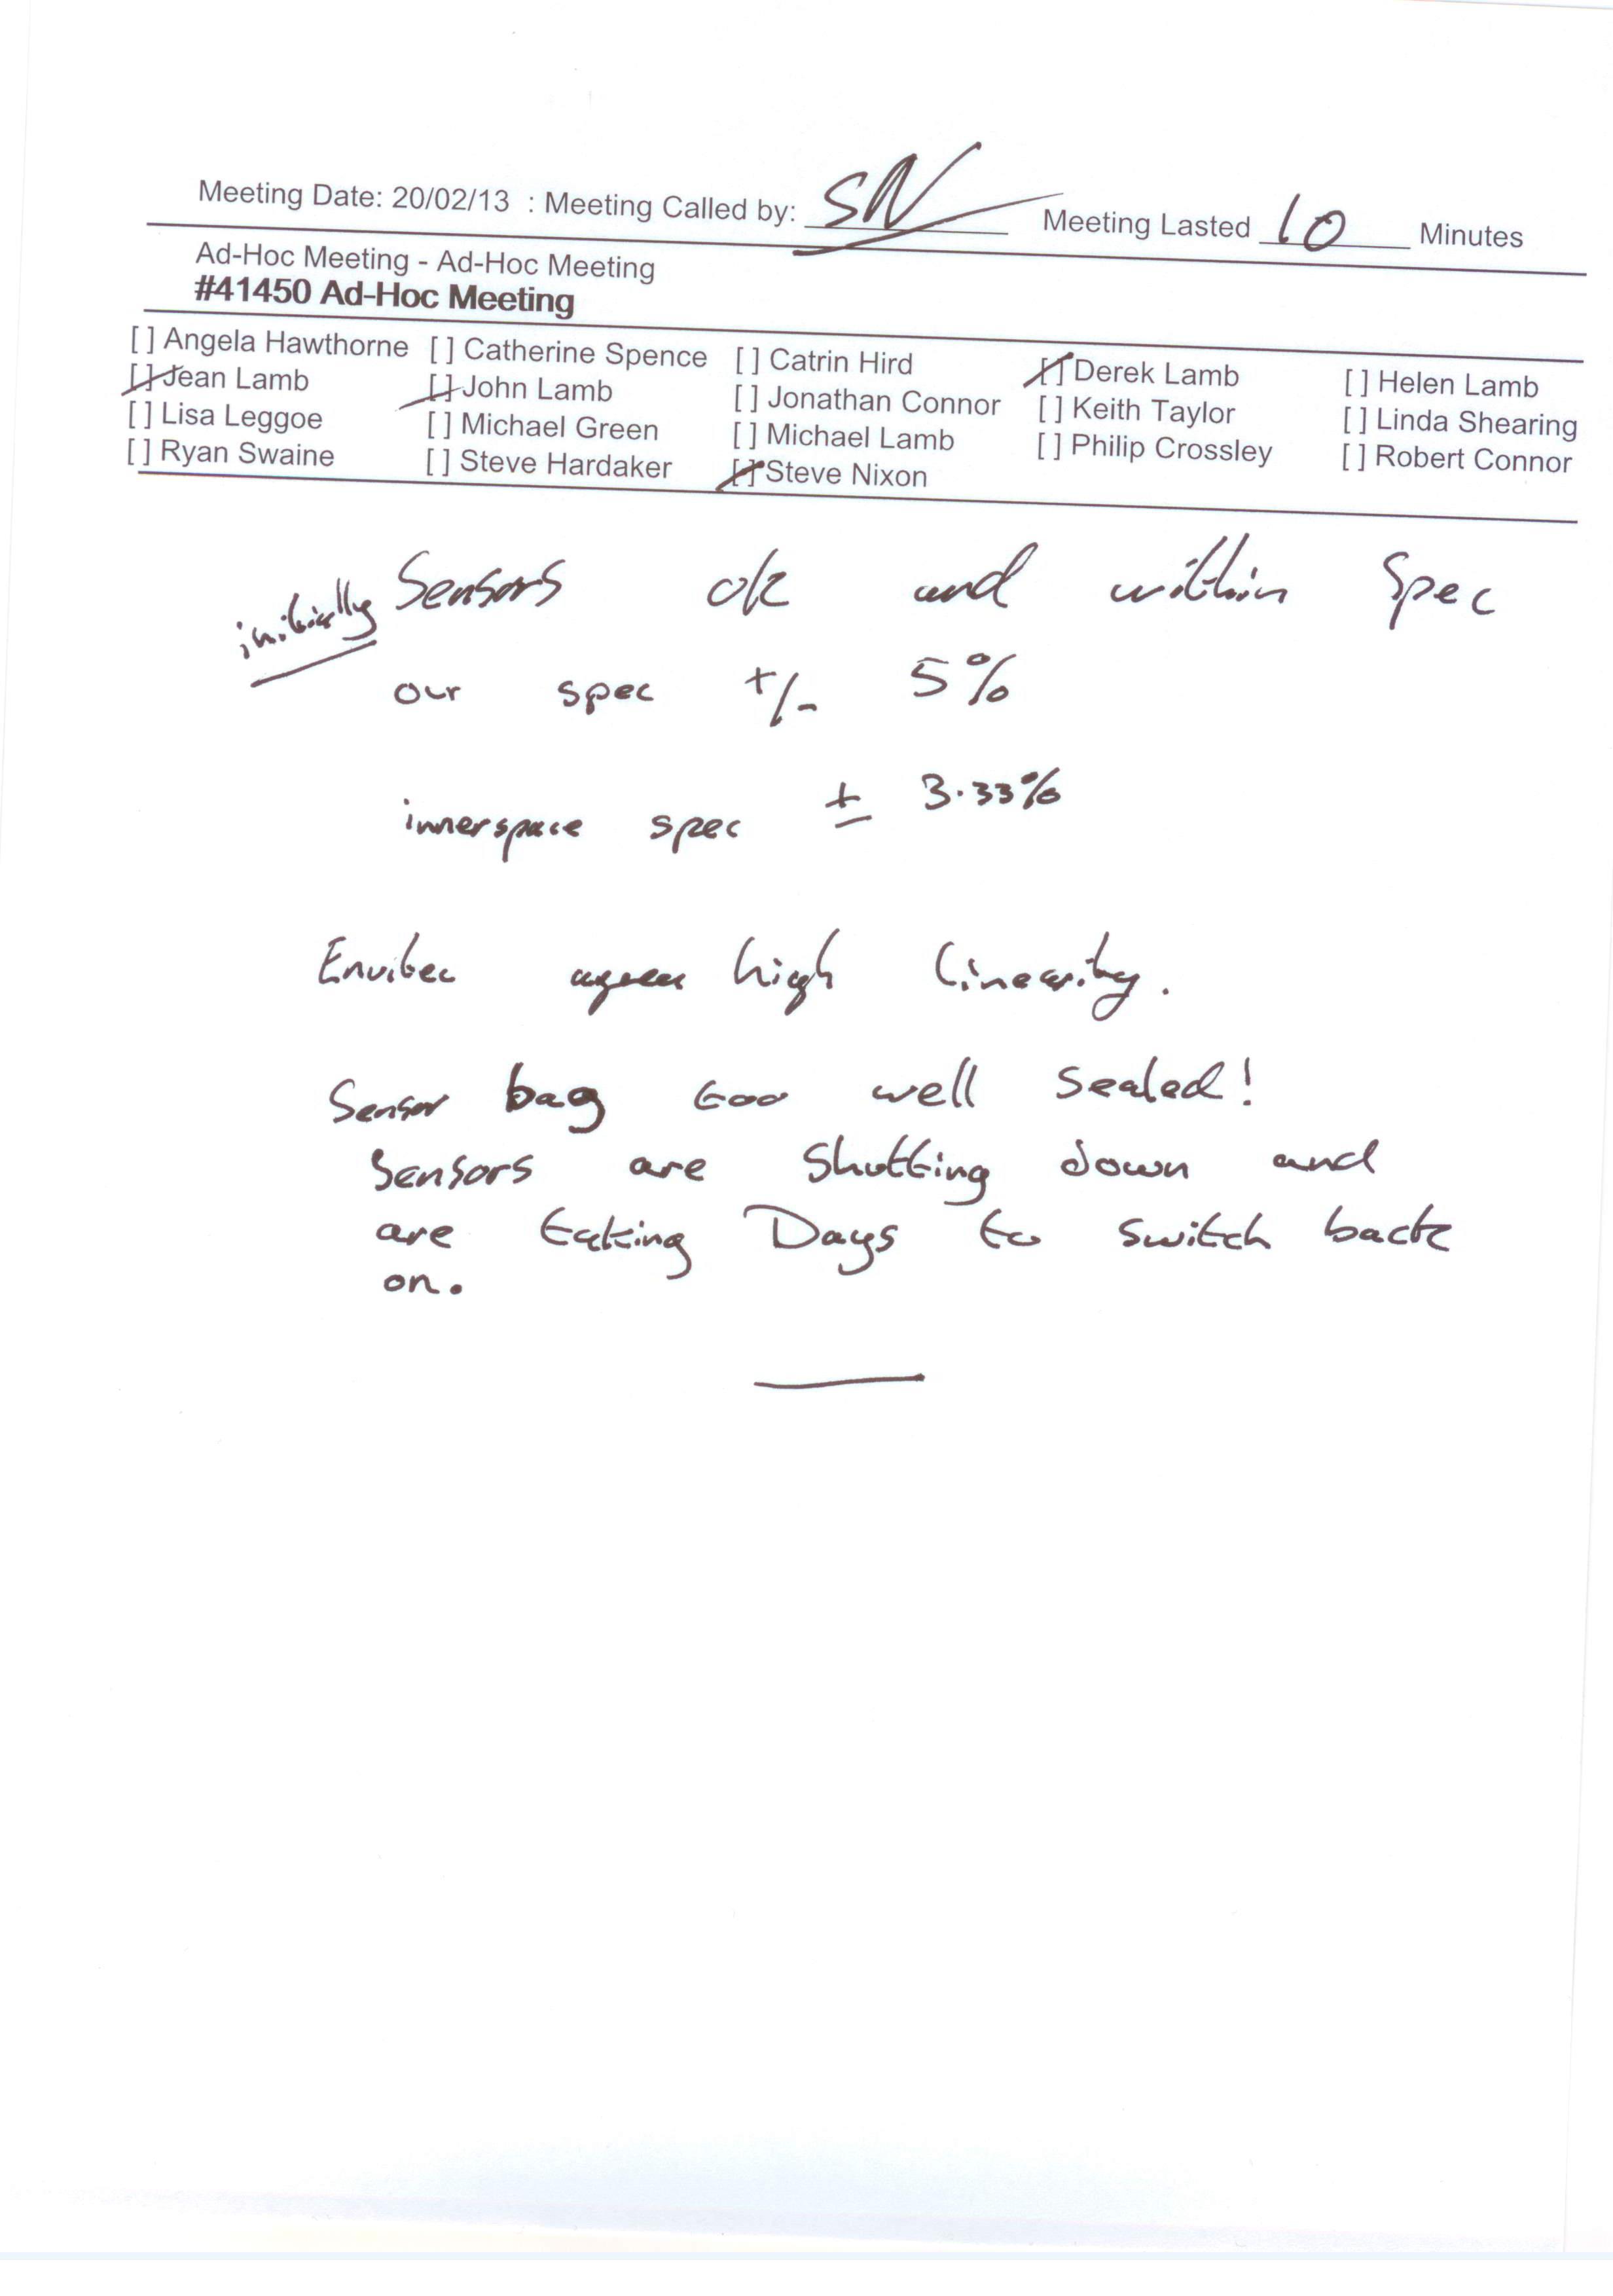 Meeting Date: 20/02/13 : Meeting Called by: SN Meeting Lasted 10 Minutes
Ad-Hoc Meeting - Ad-Hoc Meeting
#41450 Ad-Hoc Meeting
[ ] Angela Hawthorne [ ] Catherine Spence [ ] Catrin Hird [/] Derek Lamb [ ] Helen Lamb
[/] Jean Lamb [/] John Lamb [ ] Jonathan Connor [ ] Keith Taylor [ ] Linda Shearing
[ ] Lisa Leggoe [ ] Michael Green [ ] Michael Lamb [ ] Philip Crossley [ ] Robert Connor
[ ] Ryan Swaine [ ] Steve Hardaker [/] Steve Nixon
initially Sensors ok and within Spec
our spec +/- 5%
innerspace spec ± 3.33%
Envitec agree high linearity.
Sensor bag too well sealed!
Sensors are shutting down and
are taking Days to switch back
on.